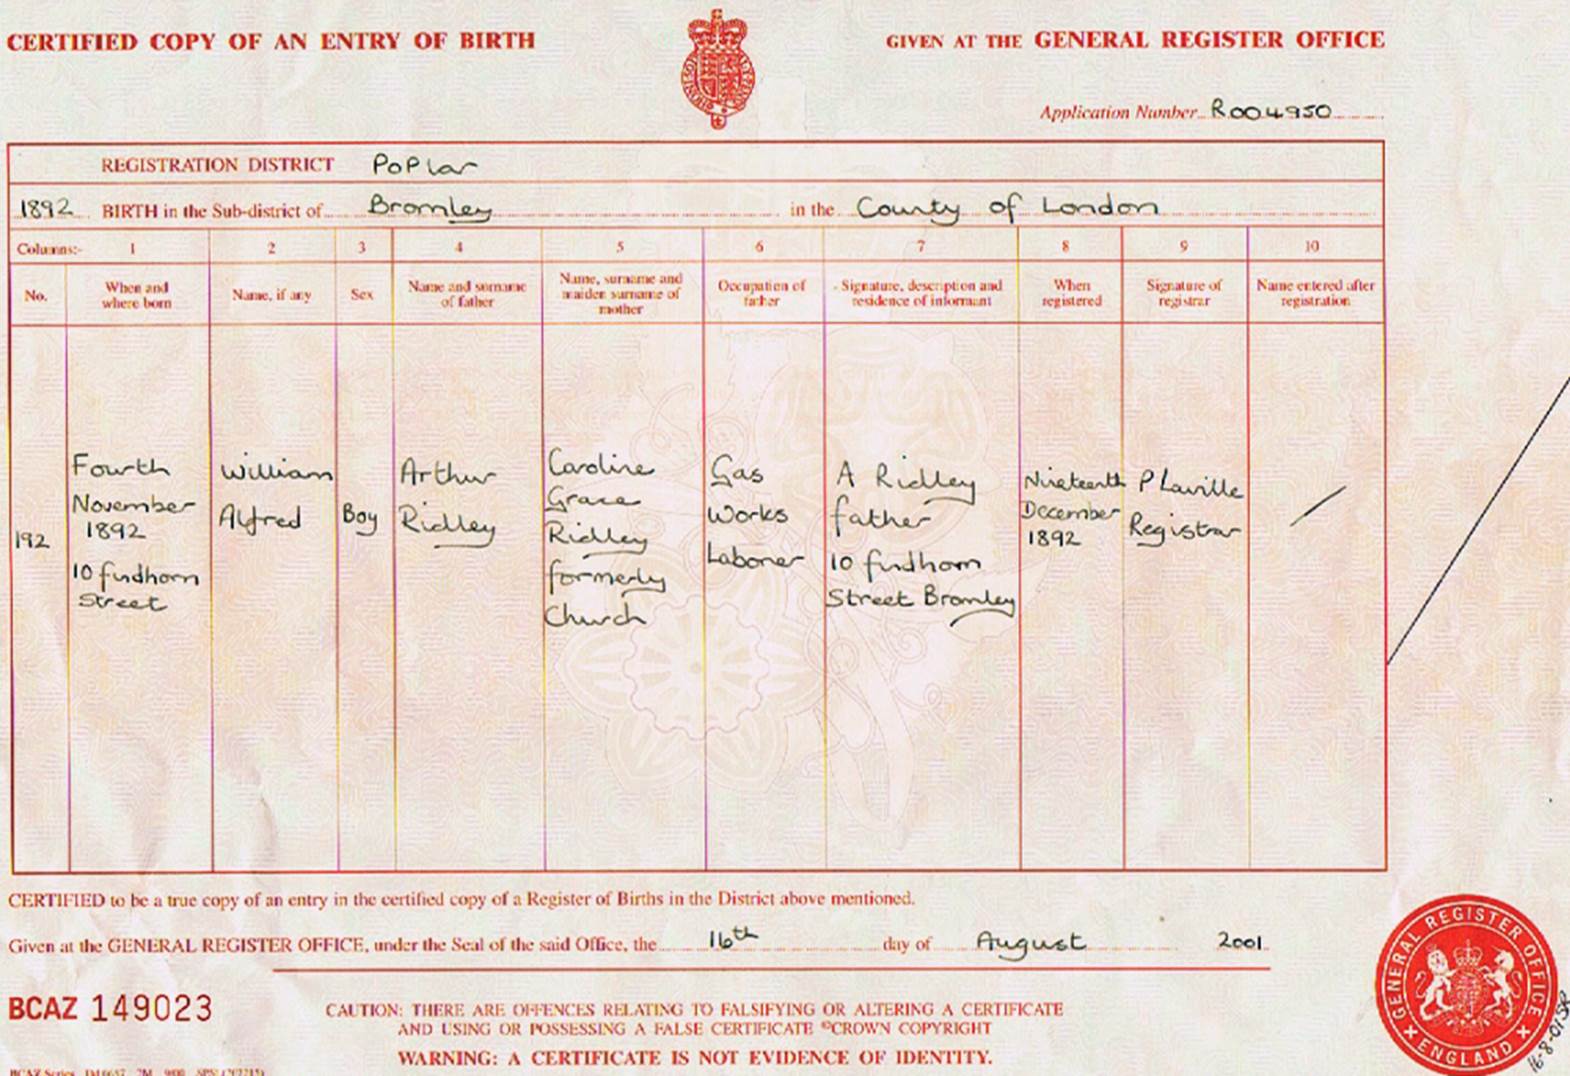 CERTIFIED COPY OF AN ENTRY OF BIRTH
GIVEN AT THE GENERAL REGISTER OFFICE
Application Number R004950
REGISTRATION DISTRICT Poplar
1892 BIRTH in the Sub-district of Bromley in the County of London
Columns:- 1 2 3 4 5 6 7 8 9 10
No.
When and
where born
Name, if any
Sex
Name and surname
of father
Name, surname and
maiden surname of
mother
Occupation of
father
Signature, description and
residence of informant
When
registered
Signature of
registrar
Name entered after
registration
192
Fourth
November
1892
10 findhorn
Street
William
Alfred
Boy
Arthur
Ridley
Caroline
Grace
Ridley
formerly
Church
Gas
Works
Laborer
A Ridley
father
10 findhorn
Street Bromley
Nineteenth
December
1892
P Laville
Registrar
CERTIFIED to be a true copy of an entry in the certified copy of a Register of Births in the District above mentioned.
Given at the GENERAL REGISTER OFFICE, under the Seal of the said Office, the 16th day of August 2001
BCAZ 149023
CAUTION: THERE ARE OFFENCES RELATING TO FALSIFYING OR ALTERING A CERTIFICATE
AND USING OR POSSESSING A FALSE CERTIFICATE ©CROWN COPYRIGHT
WARNING: A CERTIFICATE IS NOT EVIDENCE OF IDENTITY.
BCAZ Series
GENERAL REGISTER OFFICE
ENGLAND
16-8-01 SR